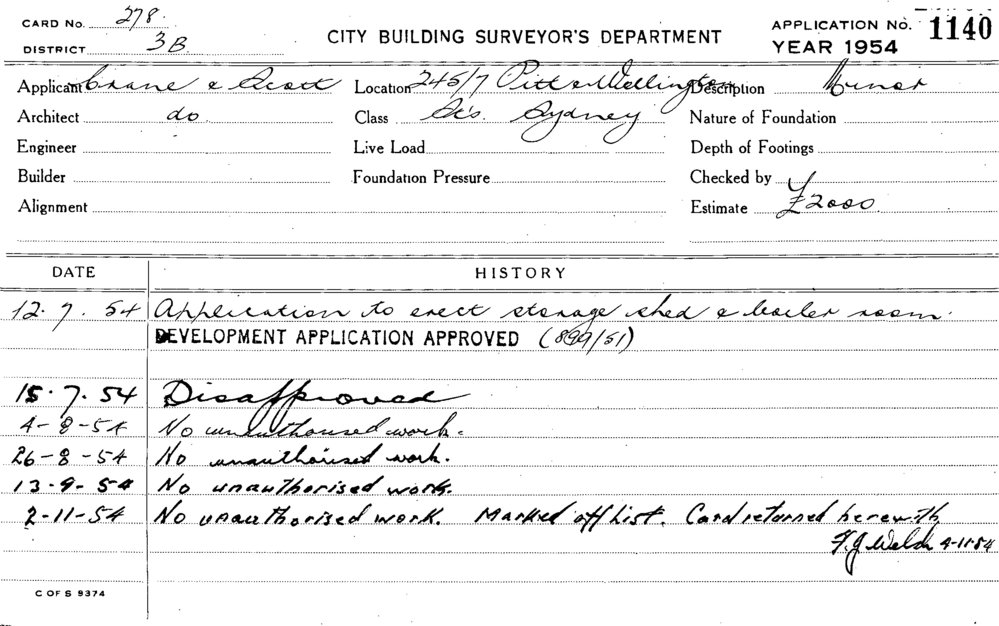 CARD No. 278.
DISTRICT 3B
CITY BUILDING SURVEYOR'S DEPARTMENT
APPLICATION No. 1140
YEAR 1954
Applicant Crane & Scott Location 245/7 Pitt & Wellington Description Minor
Architect do Class Sts. Sydney Nature of Foundation
Engineer Live Load Depth of Footings
Builder Foundation Pressure Checked by
Alignment Estimate £2000.
DATE HISTORY
12. 7. 54 Application to erect storage shed & boiler room.
DEVELOPMENT APPLICATION APPROVED (899/51)
15. 7. 54 Disapproved
4-8-54 No unauthorised work.
26-8-54 No unauthorised work.
13-9-54 No unauthorised work.
2-11-54 No unauthorised work. Marked off List. Card returned herewith
F.J. Welch 4-11-54
C OF S 9374